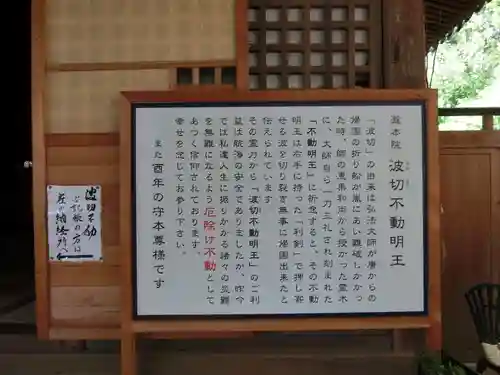 瀧本院 波切不動明王
「波切」の由来は弘法大師が唐からの
帰国の折り船が嵐にあい難破しかかっ
た時、師の恵果和尚から授かった霊木
に、大師自ら一刀三礼され刻まれた
「不動明王」に祈念すると、その不動
明王は右手に持った「利剣」で押し寄
せる波を切り裂き無事に帰国出来たと
伝えられています。
その霊力から「波切不動明王」のご利
益は航海の安全でありましたが、昨今
では私達人生に振りかかる諸々の災難
を無難になるよう厄除け不動として
あつく信仰されております。
幸せを念じてお参り下さい。
また酉年の守本尊様です
波切不動
ご祈祷の方は
左の納経所へ